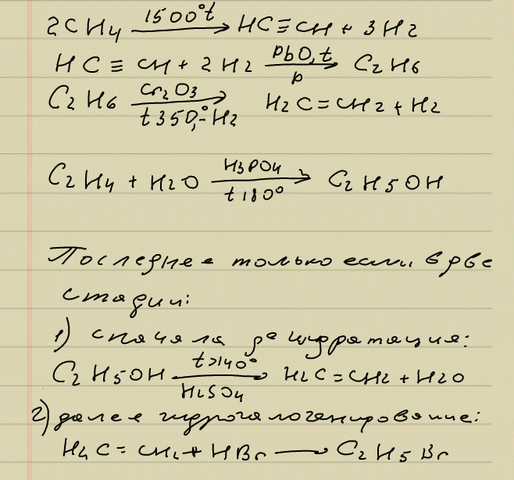 2CH4 —1500°t→ HC≡CH + 3H2
HC≡CH + 2H2 —PbO, t / p→ C2H6
C2H6 —Cr2O3 / t350, -H2→ H2C=CH2 + H2
C2H4 + H2O —H3PO4 / t180°→ C2H5OH
Последнее только если в две
стадии:
1) сначала дегидратация:
C2H5OH —t>140° / H2SO4→ H2C=CH2 + H2O
2) далее гидрогалогенирование:
H2C=CH2 + HBr → C2H5Br